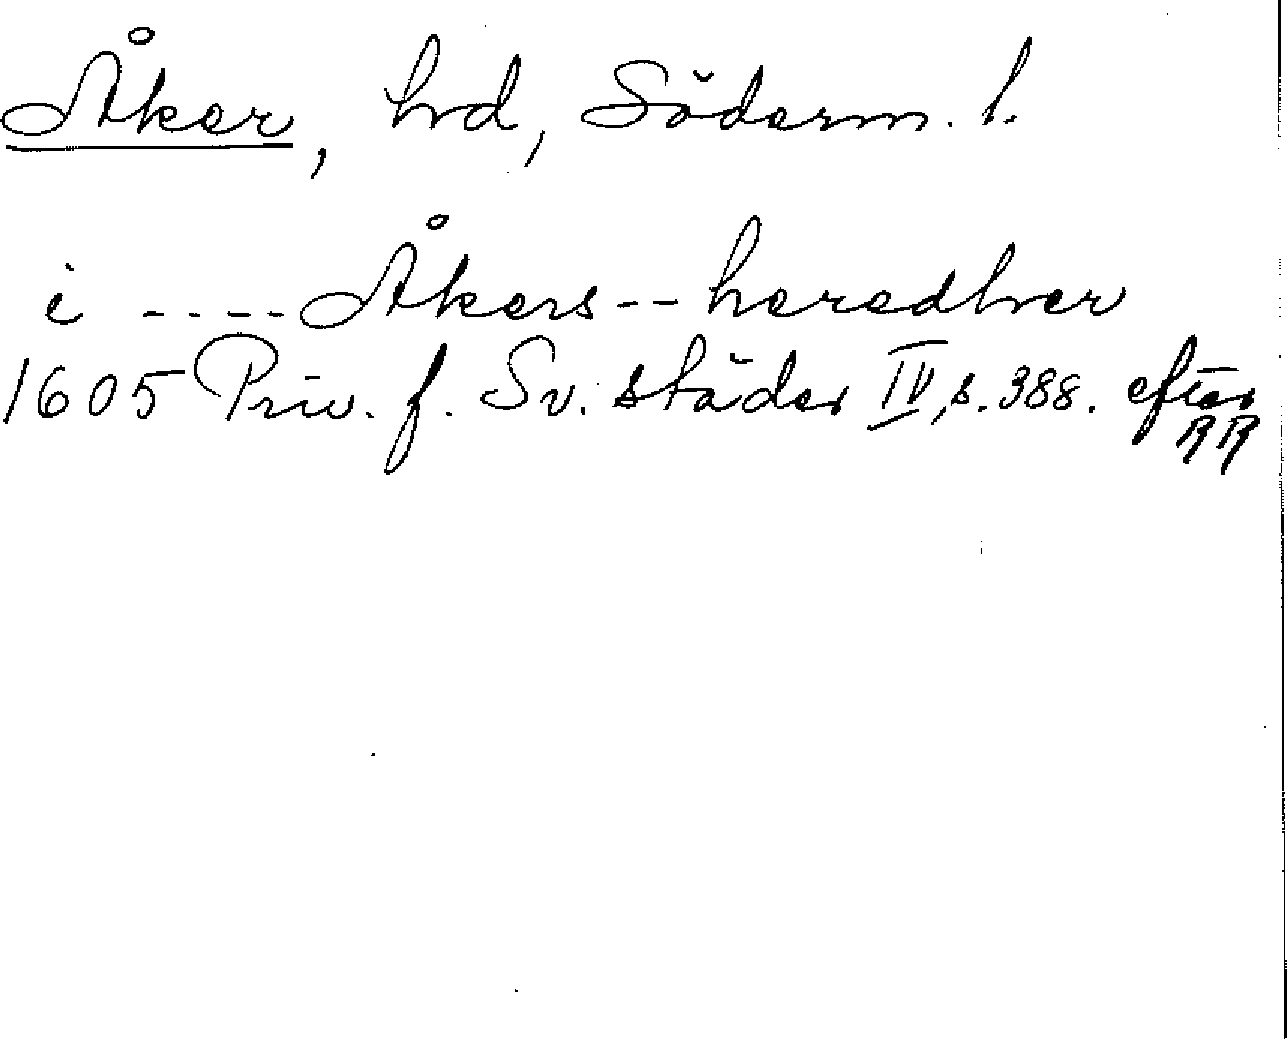 Åker, hrd, Söderm. l.
i ---- Åkers -- haradher
1605 Priv. f. Sv. städer IV, s. 388. efter
RR